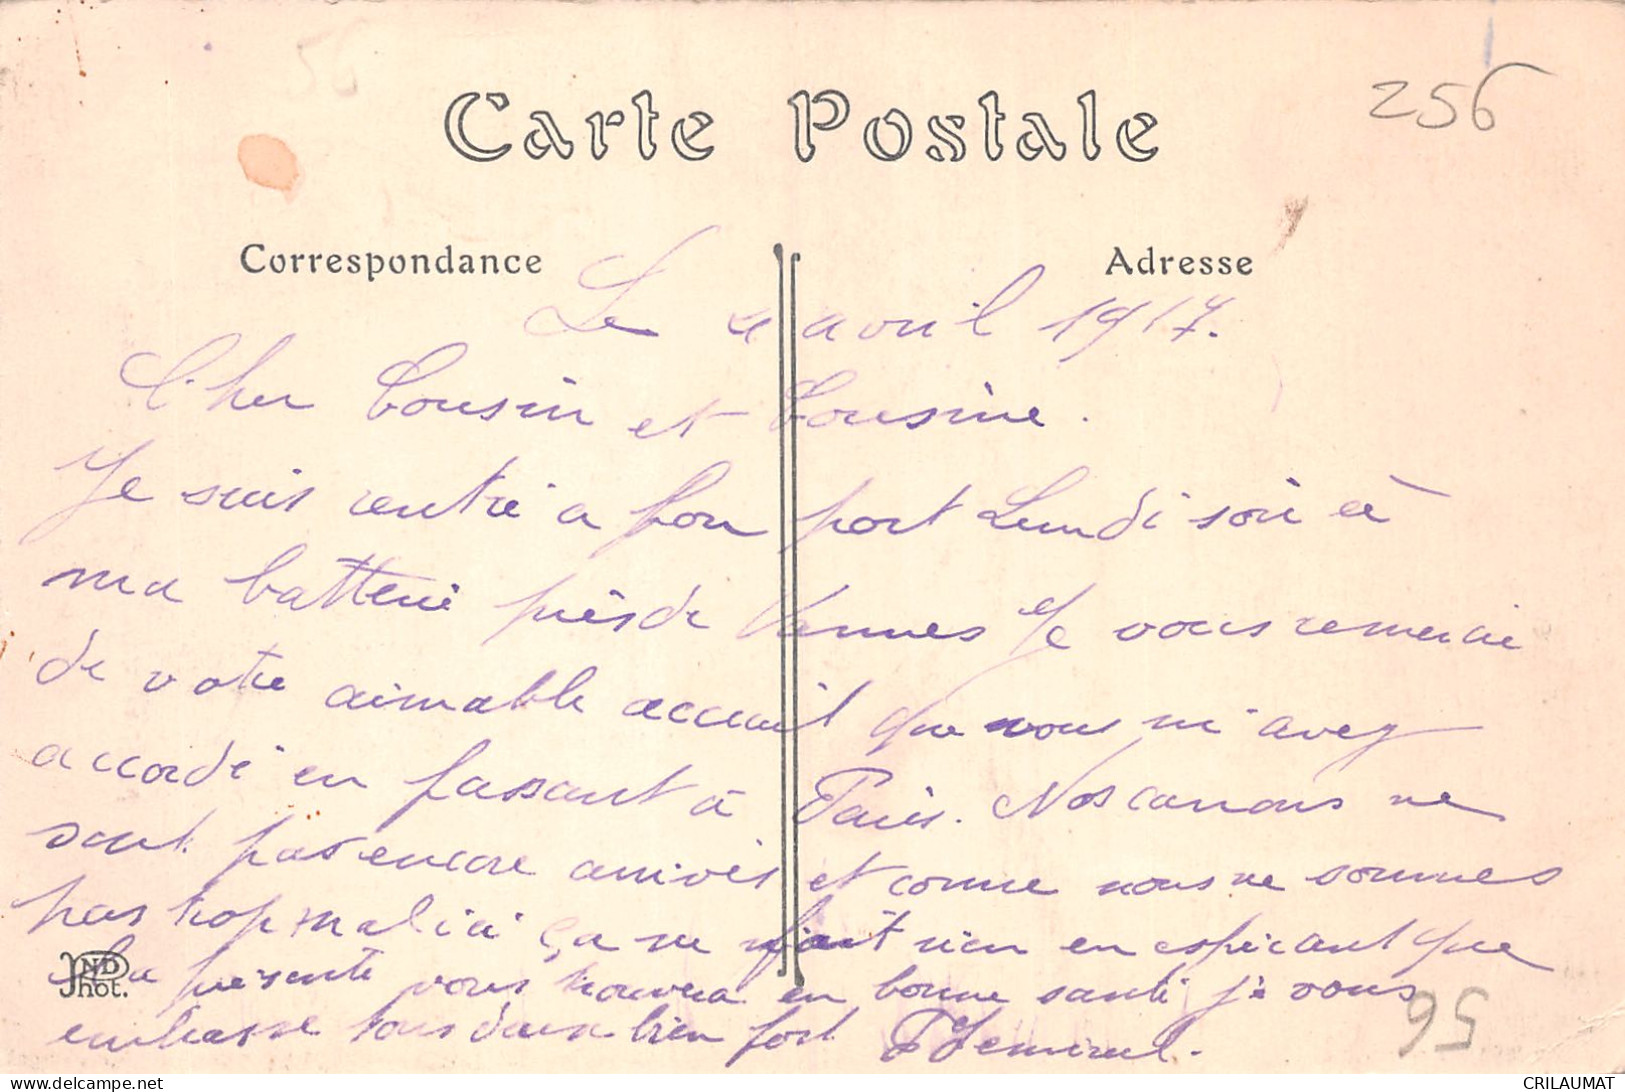 256
Carte Postale
Correspondance
Adresse
Le 4 avril 1917.
Cher Cousin et Cousine.
Je suis rentré a bon port Lundi soir à
ma batterie près de Vannes Je vous remercie
de votre aimable accueuil que vous m'avez
accordé en passant à Paris. Nos canons ne
sont pas encore arrivés et comme nous ne sommes
pas trop mal ici ça ne fait rien en espérant que
la présente vous trouvera en bonne santé je vous
embrasse tous deux bien fort
ND Phot.
56
CRILAUMAT